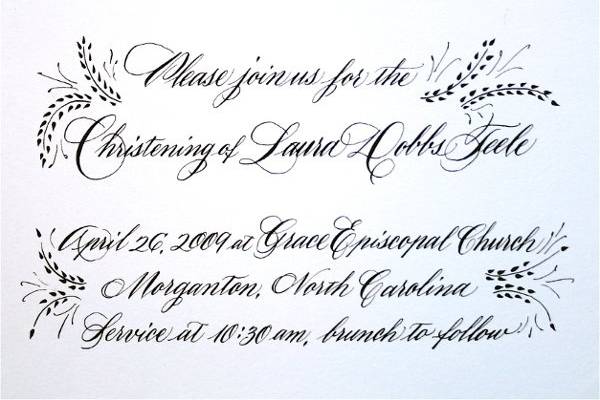 Please join us for the
Christening of Laura Dobbs Teele
April 26, 2009 at Grace Episcopal Church
Morganton, North Carolina
Service at 10:30 am, brunch to follow